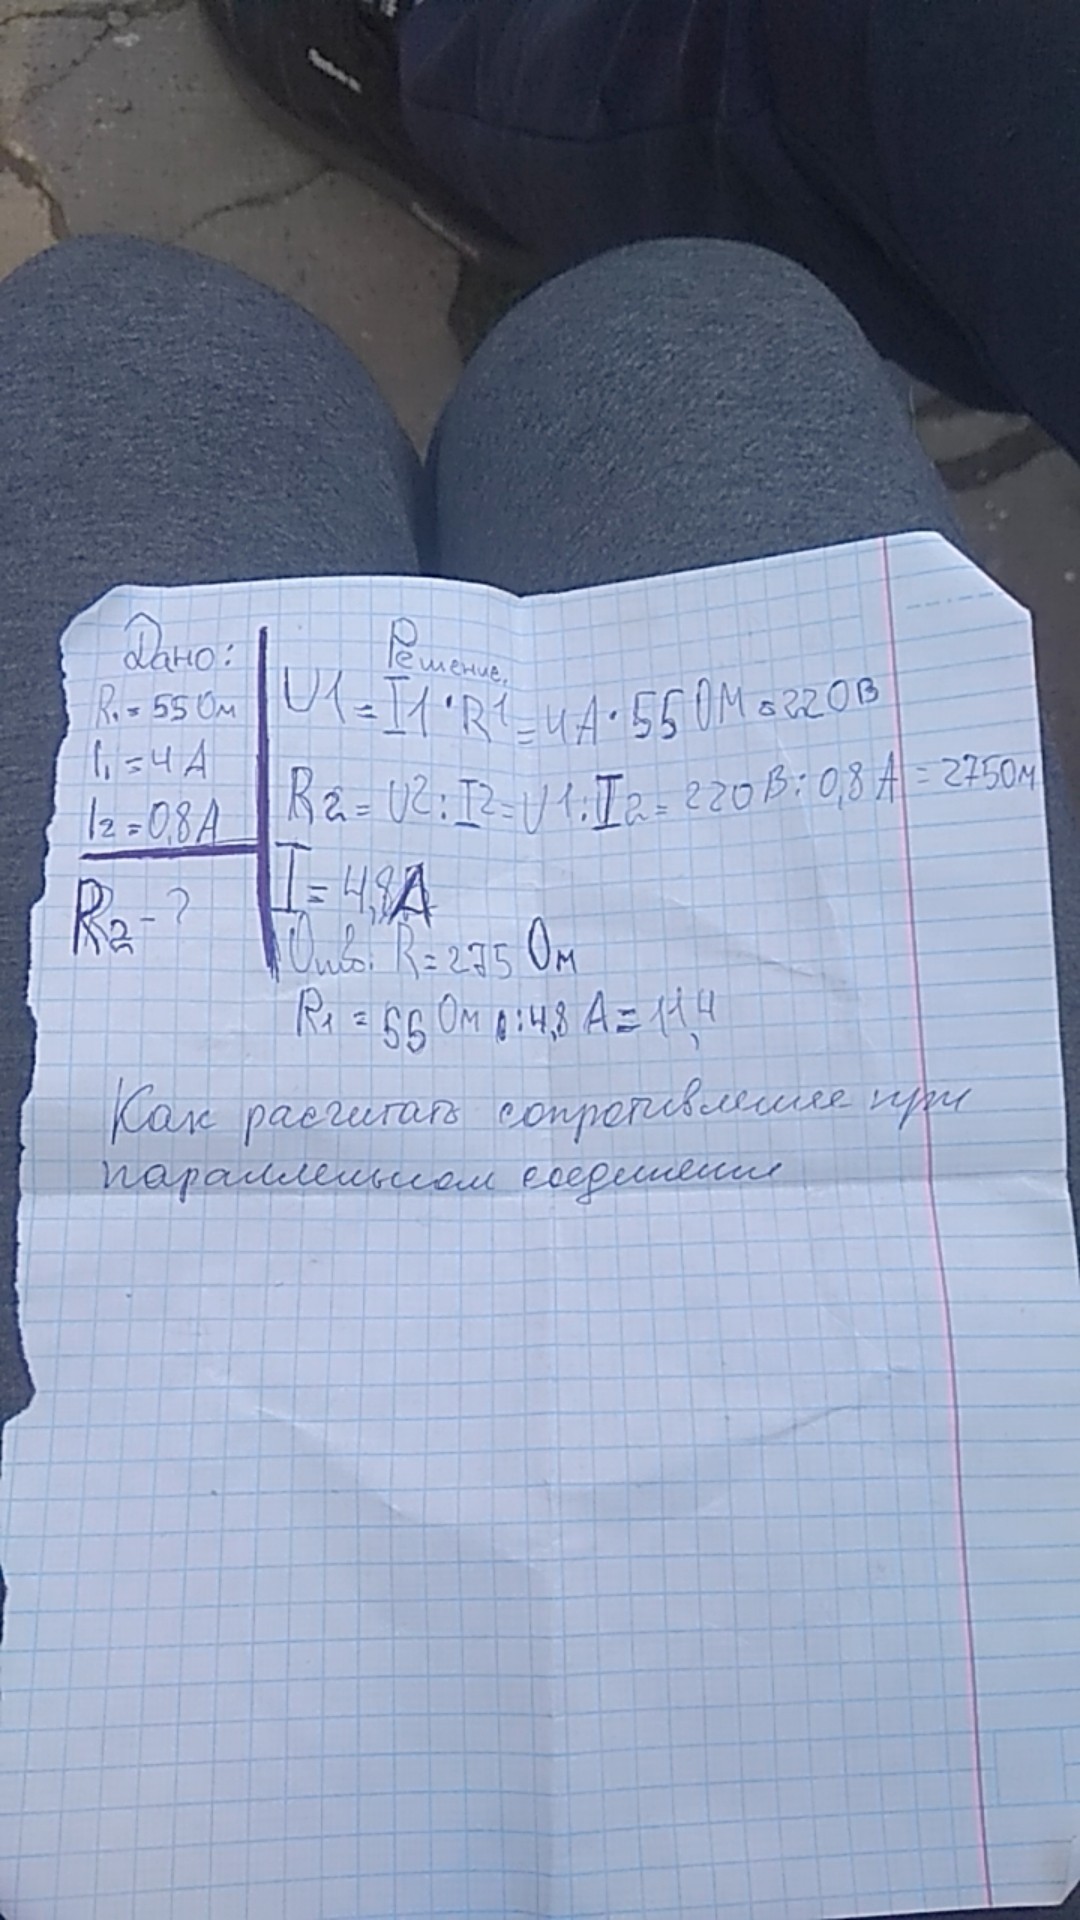 Дано:
R₁ = 55 Ом
I₁ = 4 А
I₂ = 0,8 А
R₂ - ?
Решение.
U1 = I1 · R1 = 4А · 55 ОМ = 220В
R2 = U2 : I2 = U1 : I2 = 220В : 0,8 А = 275Ом
I = 4,8А
R = 275 Ом
R₁ = 55 Ом : 4,8 А = 11,4
Как расчитать сопротивление при
параллельном соединении